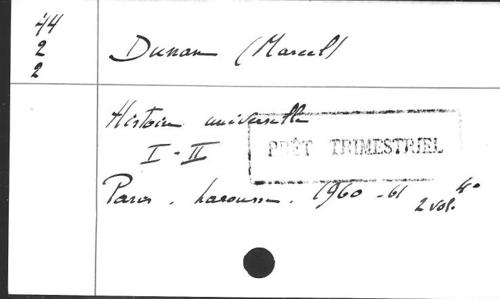 44
2
2
Dunan (Marcel)
Histoire universelle
I - II
PRÊT TRIMESTRIEL
Paris. Larousse. 1960-61
2 vol. 4°